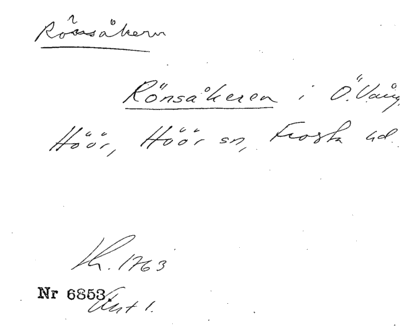 Rönsåkern
Rönsåkeren i Ö. Vång
Höör, Höör sn, Frosta hd
Kh. 1763
Nr 6853.
Akt 1.